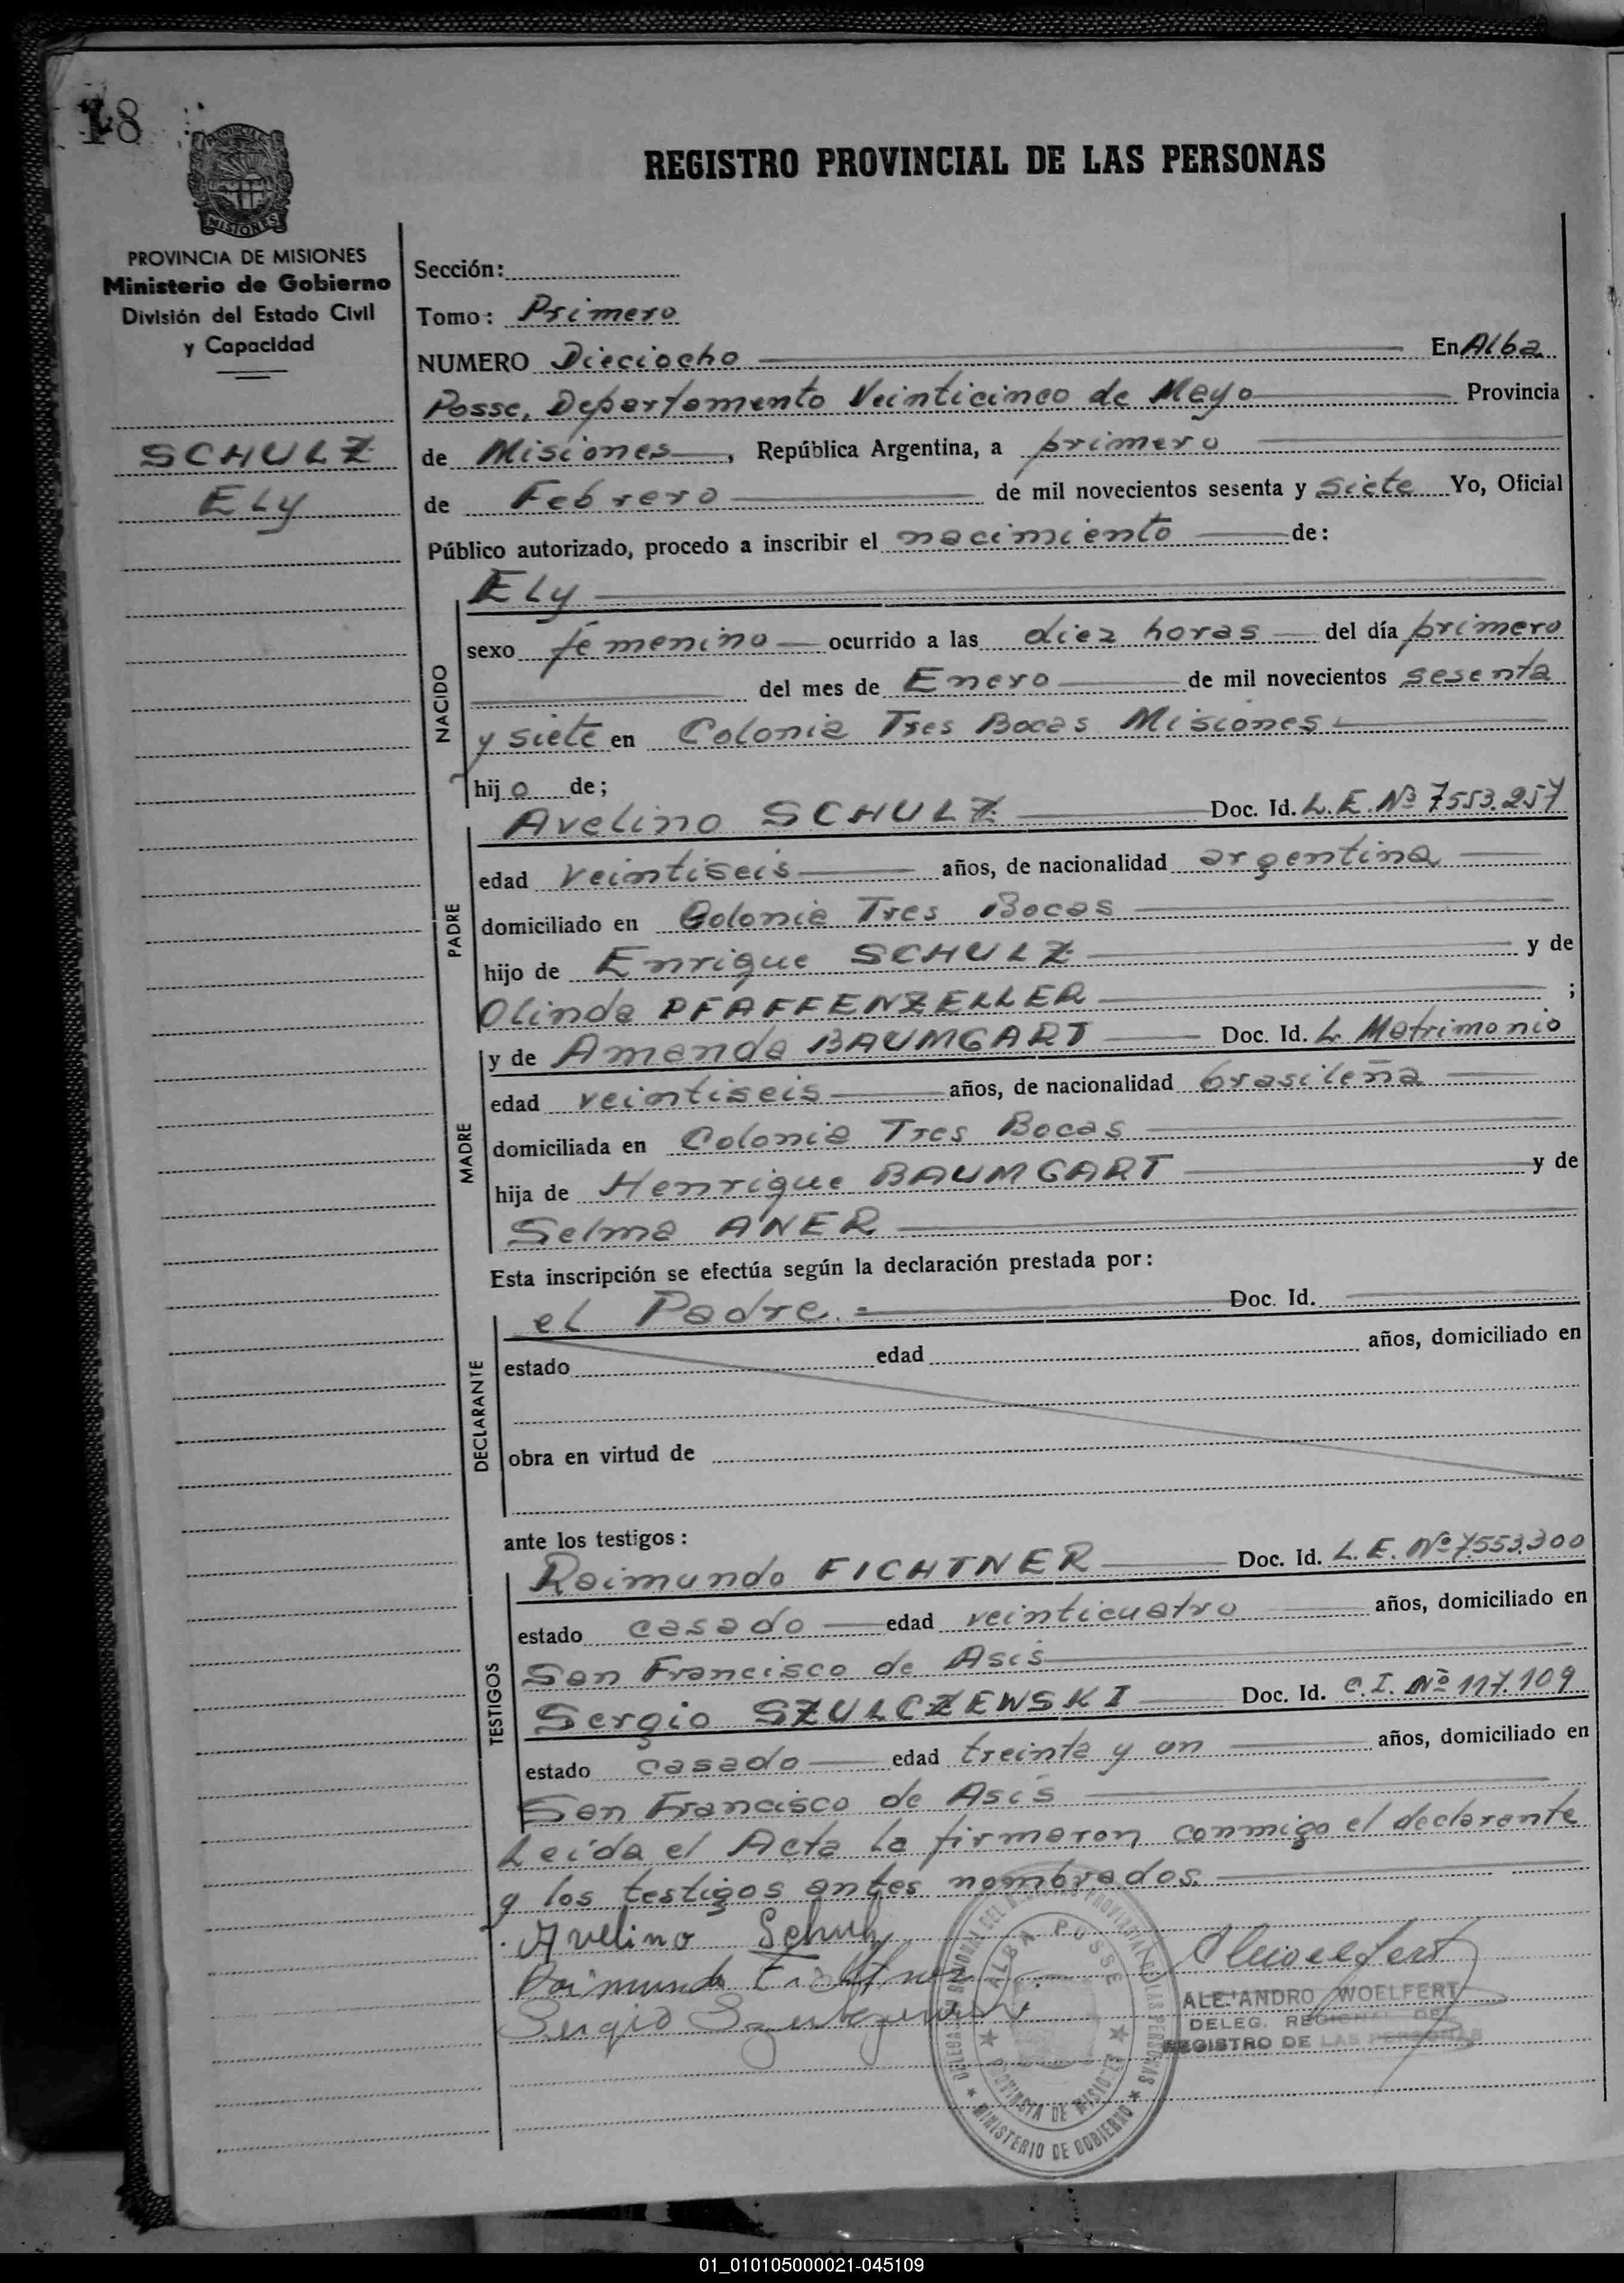 18
MISIONES
PROVINCIA DE MISIONES
Ministerio de Gobierno
División del Estado Civil
y Capacidad
SCHULZ
Ely
REGISTRO PROVINCIAL DE LAS PERSONAS
Sección:
Tomo: Primero
NUMERO Dieciocho En Alba
Posse, Departamento Veinticinco de Mayo Provincia
de Misiones, República Argentina, a primero
de Febrero de mil novecientos sesenta y siete Yo, Oficial
Público autorizado, procedo a inscribir el nacimiento de:
Ely
NACIDO
sexo femenino ocurrido a las diez horas del día primero
del mes de Enero de mil novecientos sesenta
y siete en Colonia Tres Bocas Misiones
hijo de;
PADRE
Avelino SCHULZ Doc. Id. L.E. Nº 7553.257
edad veintiseis años, de nacionalidad argentina
domiciliado en Colonia Tres Bocas
hijo de Enrique SCHULZ y de
Olinda PFAFFENZELLER ;
MADRE
y de Amanda BAUMGART Doc. Id. L. Matrimonio
edad veintiseis años, de nacionalidad brasileña
domiciliada en Colonia Tres Bocas
hija de Henrique BAUMGART y de
Selma ANER
Esta inscripción se efectúa según la declaración prestada por:
DECLARANTE
el Padre. Doc. Id.
estado edad años, domiciliado en
obra en virtud de
ante los testigos:
TESTIGOS
Raimundo FICHTNER Doc. Id. L.E. Nº 7.553.300
estado casado edad veinticuatro años, domiciliado en
San Francisco de Asis
Sergio SZULCZEWSKI Doc. Id. C.I. Nº 117.109
estado casado edad treinta y un años, domiciliado en
San Francisco de Asis
Leída el Acta la firmaron conmigo el declarante
y los testigos antes nombrados.
Avelino Schulz
Raimundo Fichtner
Sergio
ALEJANDRO WOELFERT
DELEG. REGIONAL DEL
REGISTRO DE LAS PERSONAS
ALBA POSSE
PROVINCIA DE MISIONES
MINISTERIO DE GOBIERNO
01_010105000021-045109